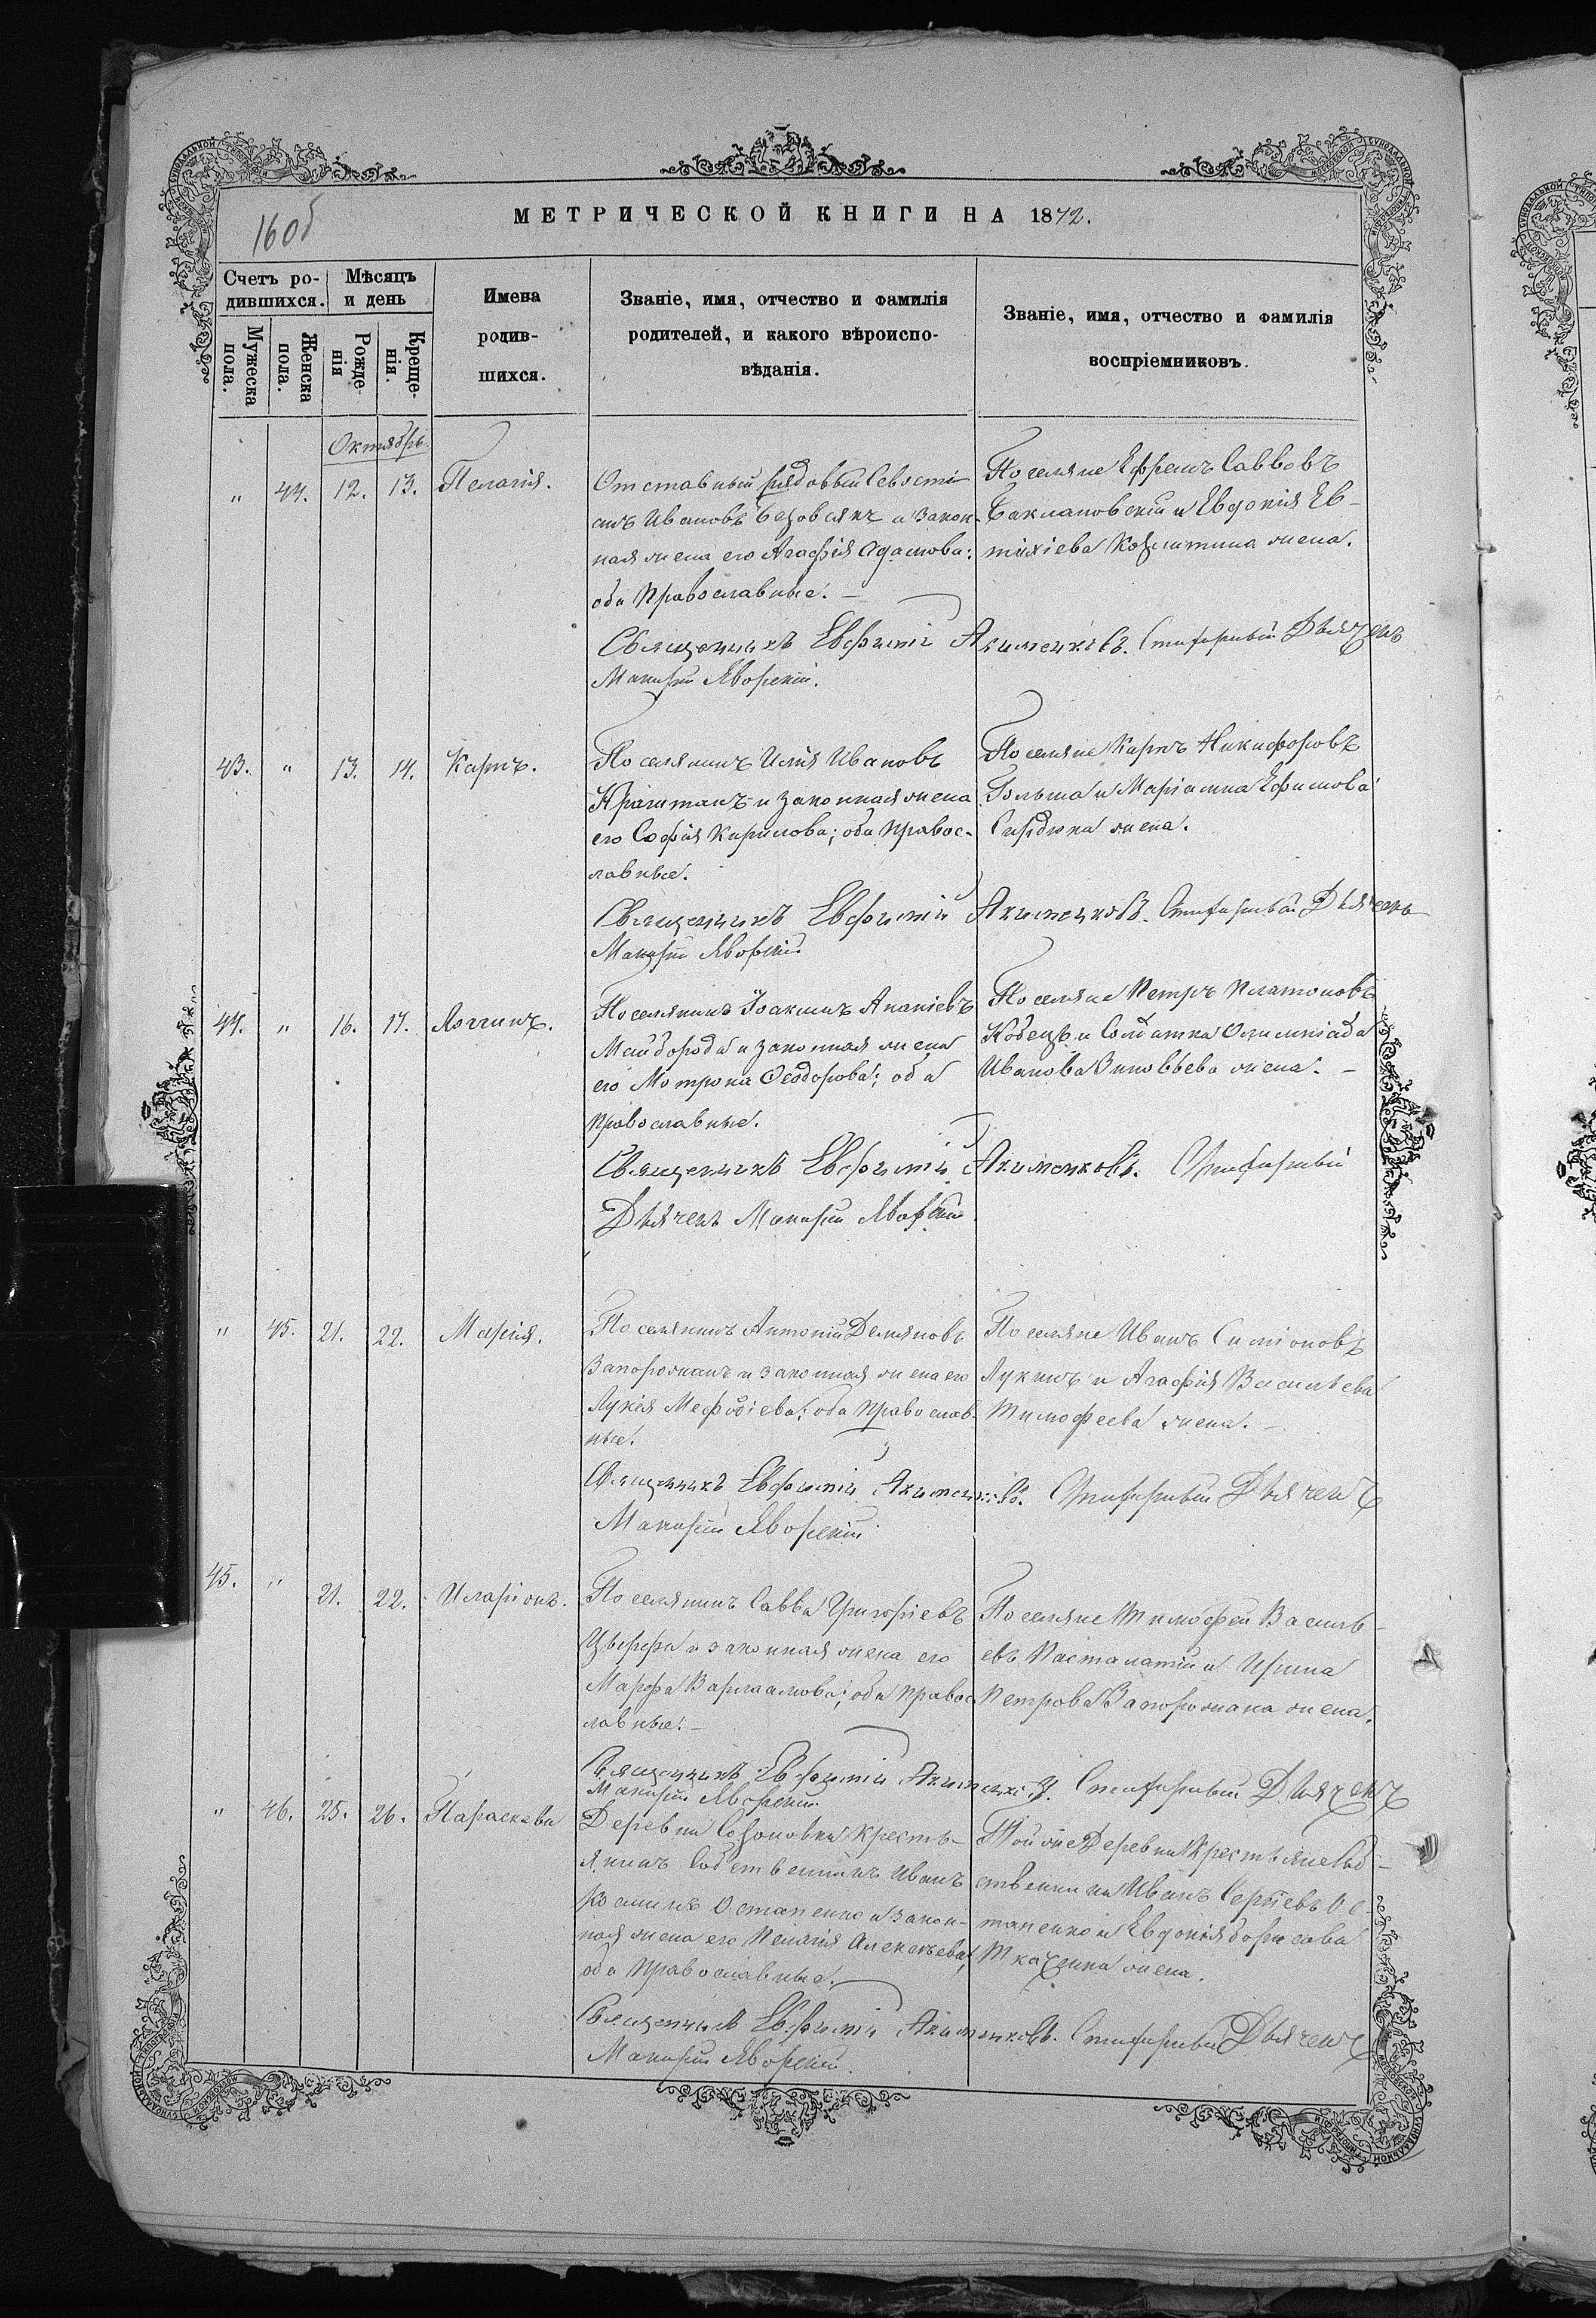 160б
МЕТРИЧЕСКОЙ КНИГИ НА 1872.
Счетъ ро-
дившихся.
Мѣсяцъ
и день
Мужеска
пола.
Женска
пола.
Рожде-
нія
Креще-
нія.
Имена
родив-
шихся.
Званіе, имя, отчество и фамилія
родителей, и какого вѣроиспо-
вѣданія.
Званіе, имя, отчество и фамилія
воспріемниковъ.
Октябрь.
" 44. 12. 13. Пелагія.
Отставный рядовый Севасті-
анъ Ивановъ и закон-
ная жена его Агафія Адамова:
оба Православные. —
Поселяне Ефремъ Саввовъ
Баклановскій и Евдокія Ев-
тихіева жена.
Священникъ Евфимій Акименковъ. Стихарный Дьячекъ
Макарій Яворскій.
43. " 13. 14. Карпъ.
Поселянинъ Илія Ивановъ
и законная жена
его Софія Кирилова; оба правос-
лавные.
Поселяне Карпъ Никифоровъ
Гольша и Маріамна Ефимова
Сердюка жена.
Священникъ Евфимій Акименковъ. Стихарный Дьячекъ
Макарій Яворскій.
44. " 16. 17. Логгинъ.
Поселянинъ Іоакимъ Ананіевъ
Майборода и законная жена
его Мотрона Феодорова; оба
православные.
Поселяне Петръ Платоновъ
Кобецъ и Солдатка Олимпіада
Иванова Зиновьева жена. —
Священникъ Евфимій Акименковъ. Стихарный
Дьячекъ Макарій Яворскій
" 45. 21. 22. Марія.
Поселянинъ Антоній Демяновъ
Запорожанъ и законная жена его
Лукія Мефодіева; оба православ-
ные.
Поселяне Иванъ Симіоновъ
Лукинъ и Агафія Васильева
Тимофеева жена. —
Священникъ Евфимій Акименковъ. Стихарный Дьячекъ
Макарій Яворскій
45. " 21. 22. Иларіонъ.
Поселянинъ Савва Григоріевъ
и законная жена его
Марфа Варлаамова; оба правос-
лавные. —
Поселяне Тимофей Василь-
евъ и Ирина
Петрова Запорожана жена.
Священникъ Евфимій Акименковъ. Стихарный Дьячекъ
Макарій Яворскій
" 46. 25. 26. Параскева
Деревни Созоновки кресть-
янинъ Собственникъ Иванъ
Остапенко и закон-
ная жена его Пелагія Алексѣева;
оба Православные. —
Той же Деревни Крестьяне Соб-
ственники Иванъ Сергіевъ Ос-
тапенко и Евдокія Борисова
Ткаченка жена.
Священникъ Евфимій Акименковъ. Стихарный Дьячекъ
Макарій Яворскій